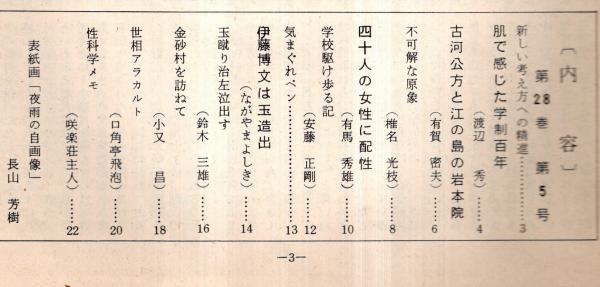 〔内容〕
第28巻 第5号
新しい考え方への精進……………3
肌で感じた学制百年
(渡辺 秀)……4
古河公方と江の島の岩本院
(有賀 密夫)……6
不可解な原象
(椎名 光枝)……8
四十人の女性に配性
(有馬 秀雄)……10
学校駆け歩る記
(安藤 正剛)……12
気まぐれペン……………13
伊藤博文は玉造出
(ながやまよしき)……14
玉蹴り治左泣出す
(鈴木 三雄)……16
金砂村を訪ねて
(小又 昌)……18
世相アラカルト
(ロ角亭飛泡)……20
性科学メモ
(咲楽荘主人)……22
表紙画「夜雨の自画像」
長山 芳樹
―3―